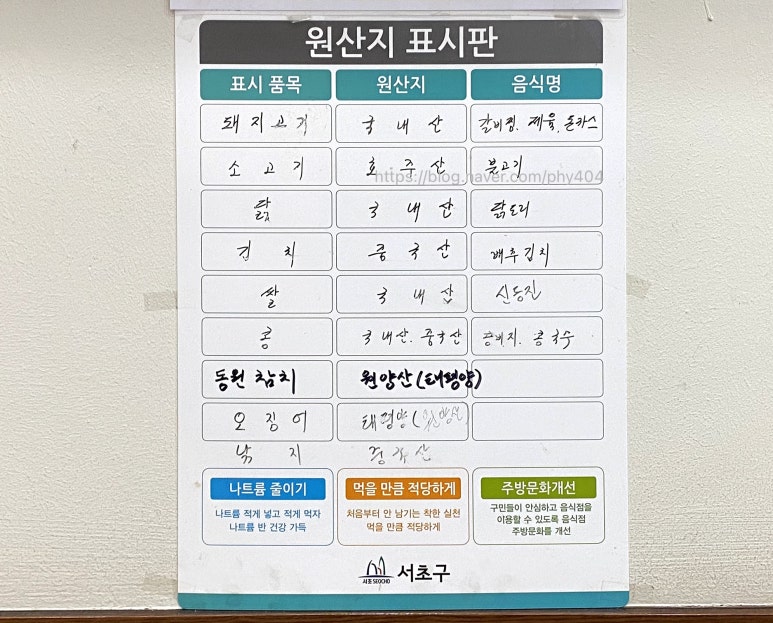 원산지 표시판
표시 품목 원산지 음식명
돼지고기 국내산 갈비찜. 제육. 돈카스
소고기 호주산 불고기
https://blog.naver.com/phy404
닭 국내산 닭도리
김치 중국산 배추김치
쌀 국내산 신동진
콩 국내산. 중국산 콩비지. 콩국수
동원참치 원양산(태평양)
오징어 태평양(원양산)
낚지 중국산
나트륨 줄이기 먹을 만큼 적당하게 주방문화개선
나트륨 적게 넣고 적게 먹자
나트륨 반 건강 가득
처음부터 안 남기는 착한 실천
먹을 만큼 적당하게
구민들이 안심하고 음식점을
이용할 수 있도록 음식점
주방문화를 개선
서초 SEOCHO 서초구